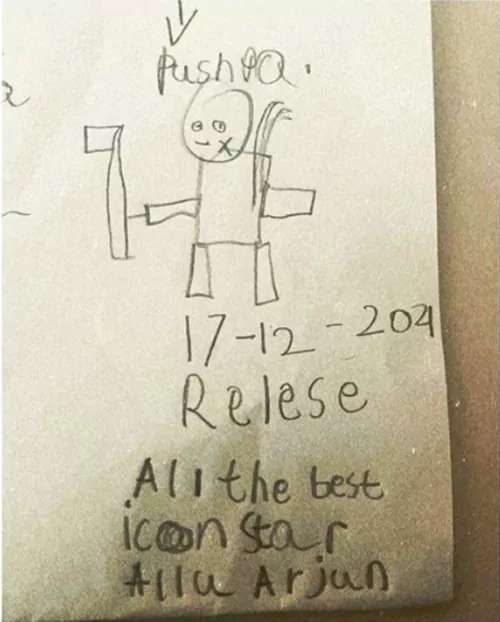 Pushpa.
17-12-2021
Relese
All the best
icon star
Allu Arjun